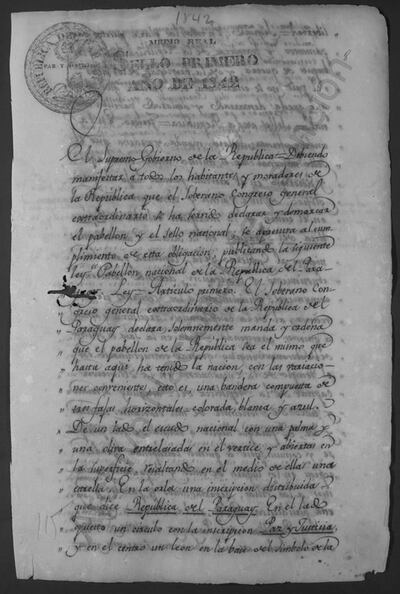 1842
MEDIO REAL
SELLO PRIMERO
AÑO DE 1842
REPUBLICA
PAZ Y JUSTICIA
El Supremo Gobierno de la Republica = Debiendo
manifestar à todos los habitantes y moradores de
la Republica que el Soberano Congreso general
extraordinario se ha servido declarar y demarcar
el pabellon y el sello nacional; se apresura al cum-
plimiento de esta obligacion, publicando la siguiente
ley = Pabellon nacional de la Republica del Para-
Ley = Articulo primero. El Soberano Con-
greso general extraordinario de la Republica del
Paraguay declara solemnemente manda y ordena
que el pabellon de la Republica sea el mismo que
hasta aqui ha tenido la nacion, con las variacio-
nes convenientes, esto es, una bandera compuesta de
tres fajas horizontales, colorada, blanca y azul.
De un lado el escudo nacional con una palma y
una oliva entrelazadas en el vertice y abiertas en
la superficie, resaltando en el medio de ellas una
estrella. En la orla una inscripcion distribuida
que dice Republica del Paraguay. En el lado
opuesto un circulo con la inscripcion Paz y Justicia,
y en el centro un leon en la base del simbolo de la